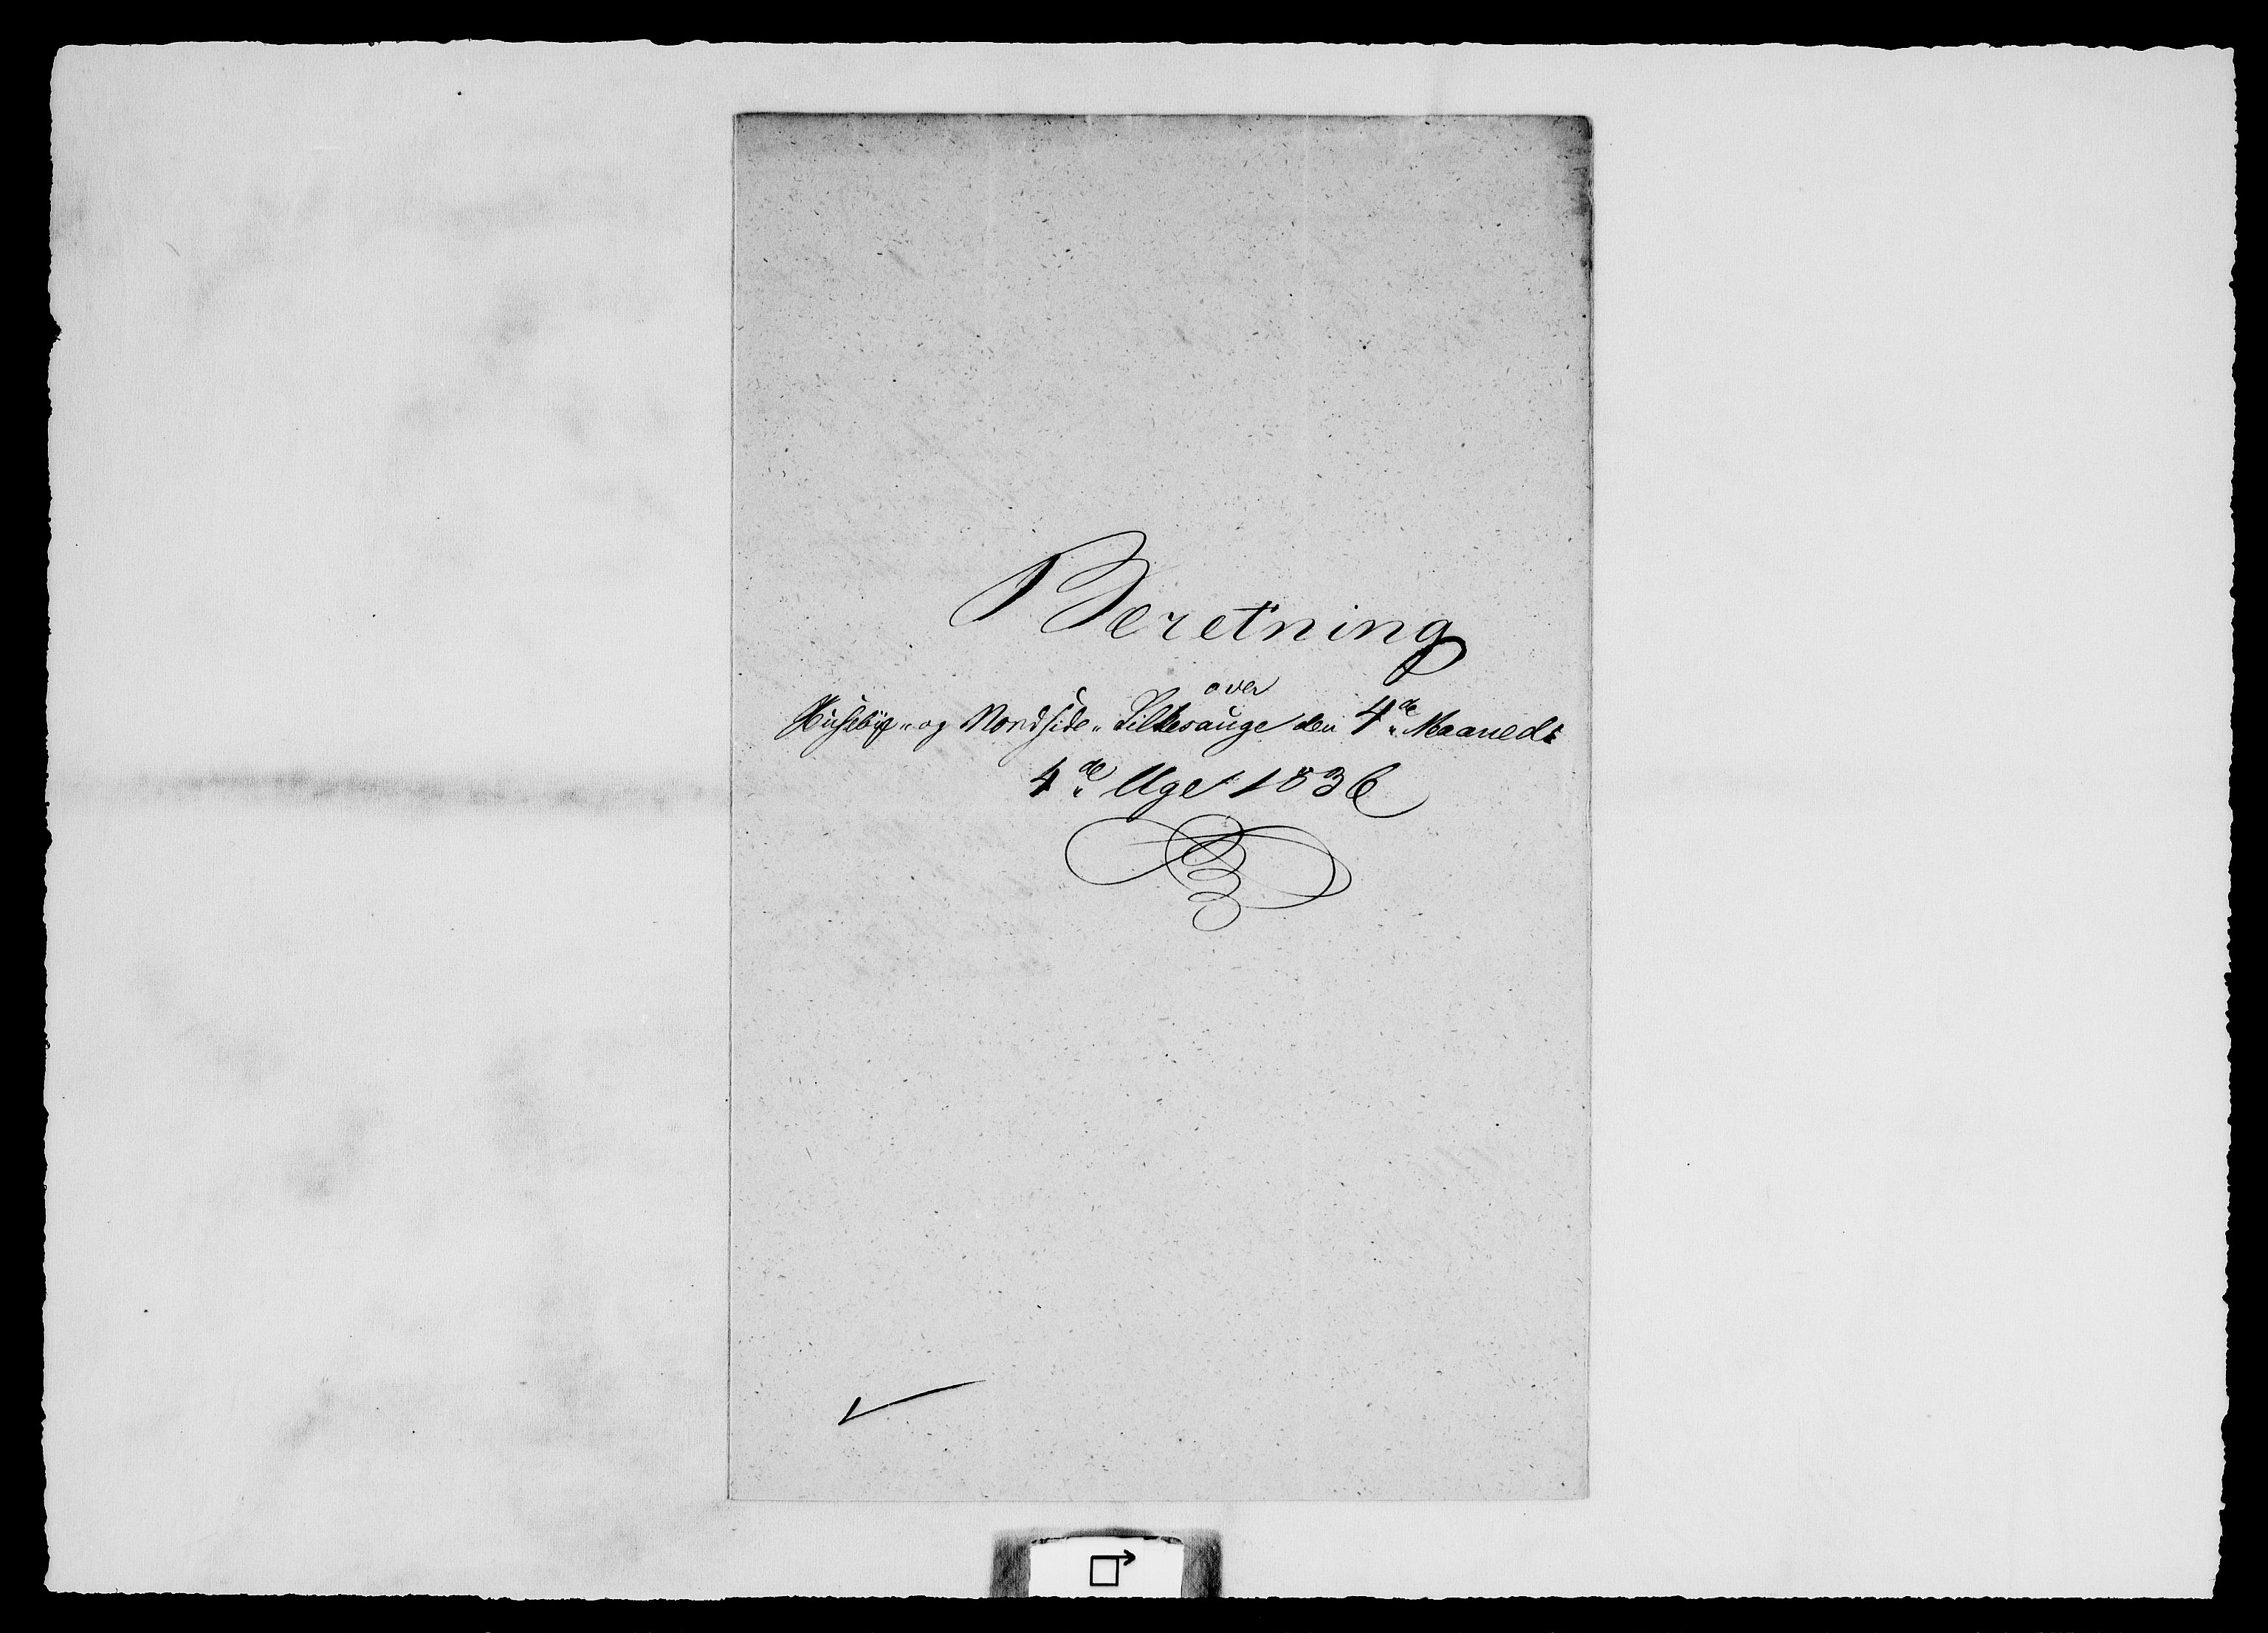 Beretning
over
Huseböe- og Nordside- Silkesauge den 4de Maaneds
4de Uge 1836